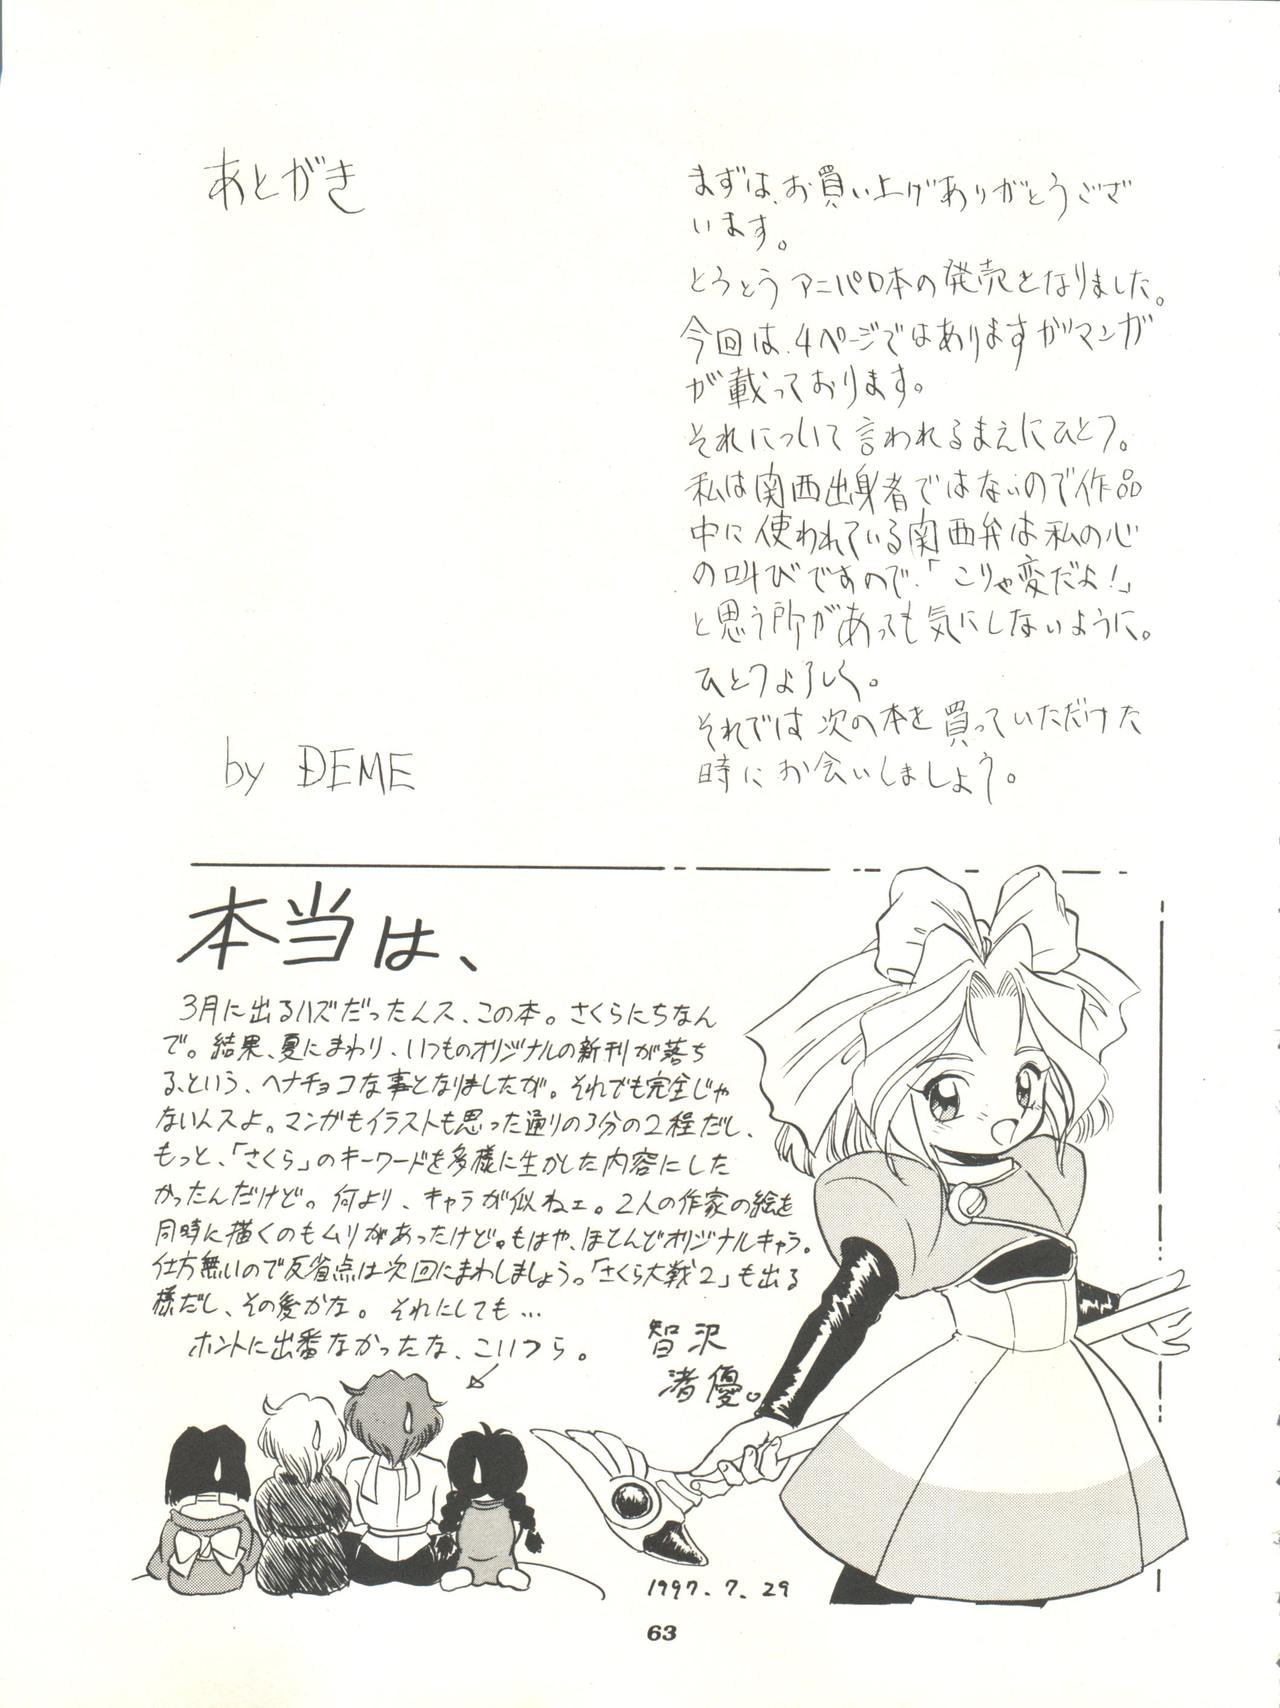 あとがき
まずは、お買い上げありがとうござ
います。
とうとうアニパロ本の発売となりました。
今回は、4ページではありますがマンガ
が載っております。
それについて言われるまえにひとつ。
私は関西出身者ではないので作品
中に使われている関西弁は私の心
の叫びですので、「こりゃ変だよ!」
と思う所があっても気にしないように。
ひとつよろしく。
それでは次の本を買っていただけた
時にお会いしましょう。
by DEME
本当は、
3月に出るハズだったんス、この本。さくらにちなん
で。結果、夏にまわり、いつものオリジナルの新刊が落ち
る、という、ヘナチョコな事となりましたが。それでも完全じゃ
ないんスよ。マンガもイラストも思った通りの3分の2程だし、
もっと、「さくら」のキーワードを多様に生かした内容にした
かったんだけど。何より、キャラが似ねェ。2人の作家の絵を
同時に描くのもムリがあったけど。もはや、ほとんどオリジナルキャラ。
仕方無いので反省点は次回にまわしましょう。「さくら大戦2」も出る
様だし、その後かな。それにしても…
ホントに出番なかったな、こいつら。
智沢
渚優。
1997.7.29
63